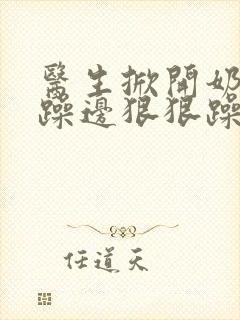 醫生掀開奶
躁邊狠狠躁
任道天